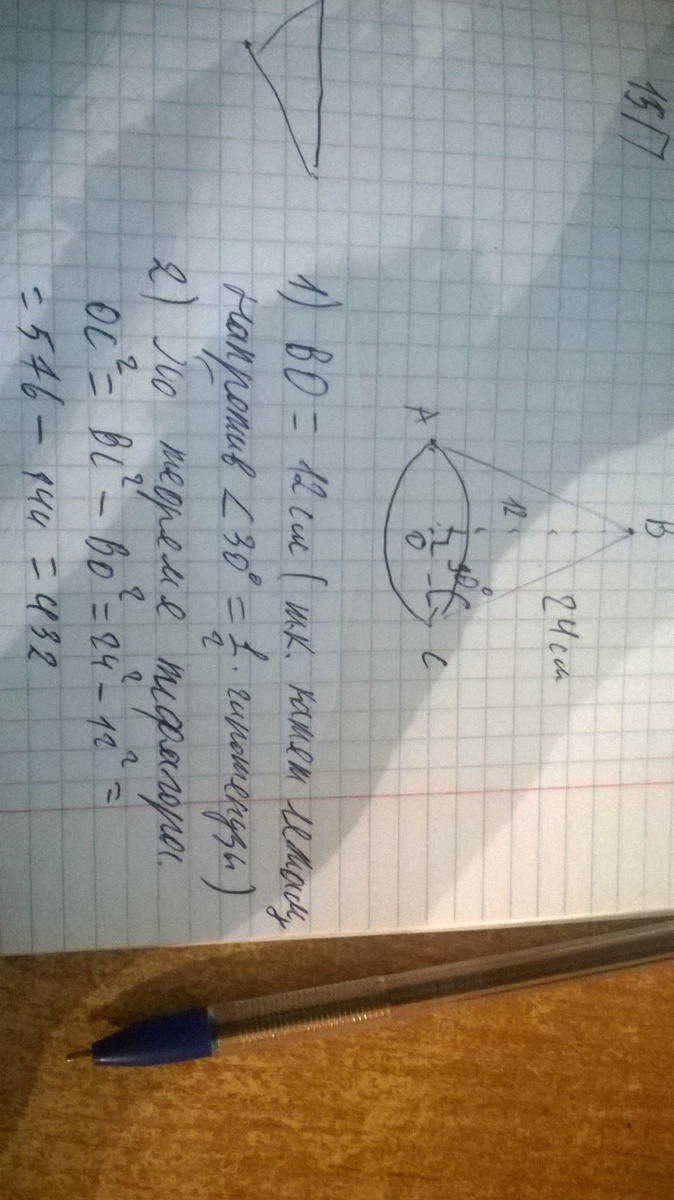 15/П
B
24 см
12
30°
A
O
C
1) BO = 12 см (т.к. катет лежащ
напротив < 30° = 1/2 · гипотенузы)
2) По теореме пифагора.
OC² = BC² - BO² = 24² - 12² =
= 576 - 144 = 432